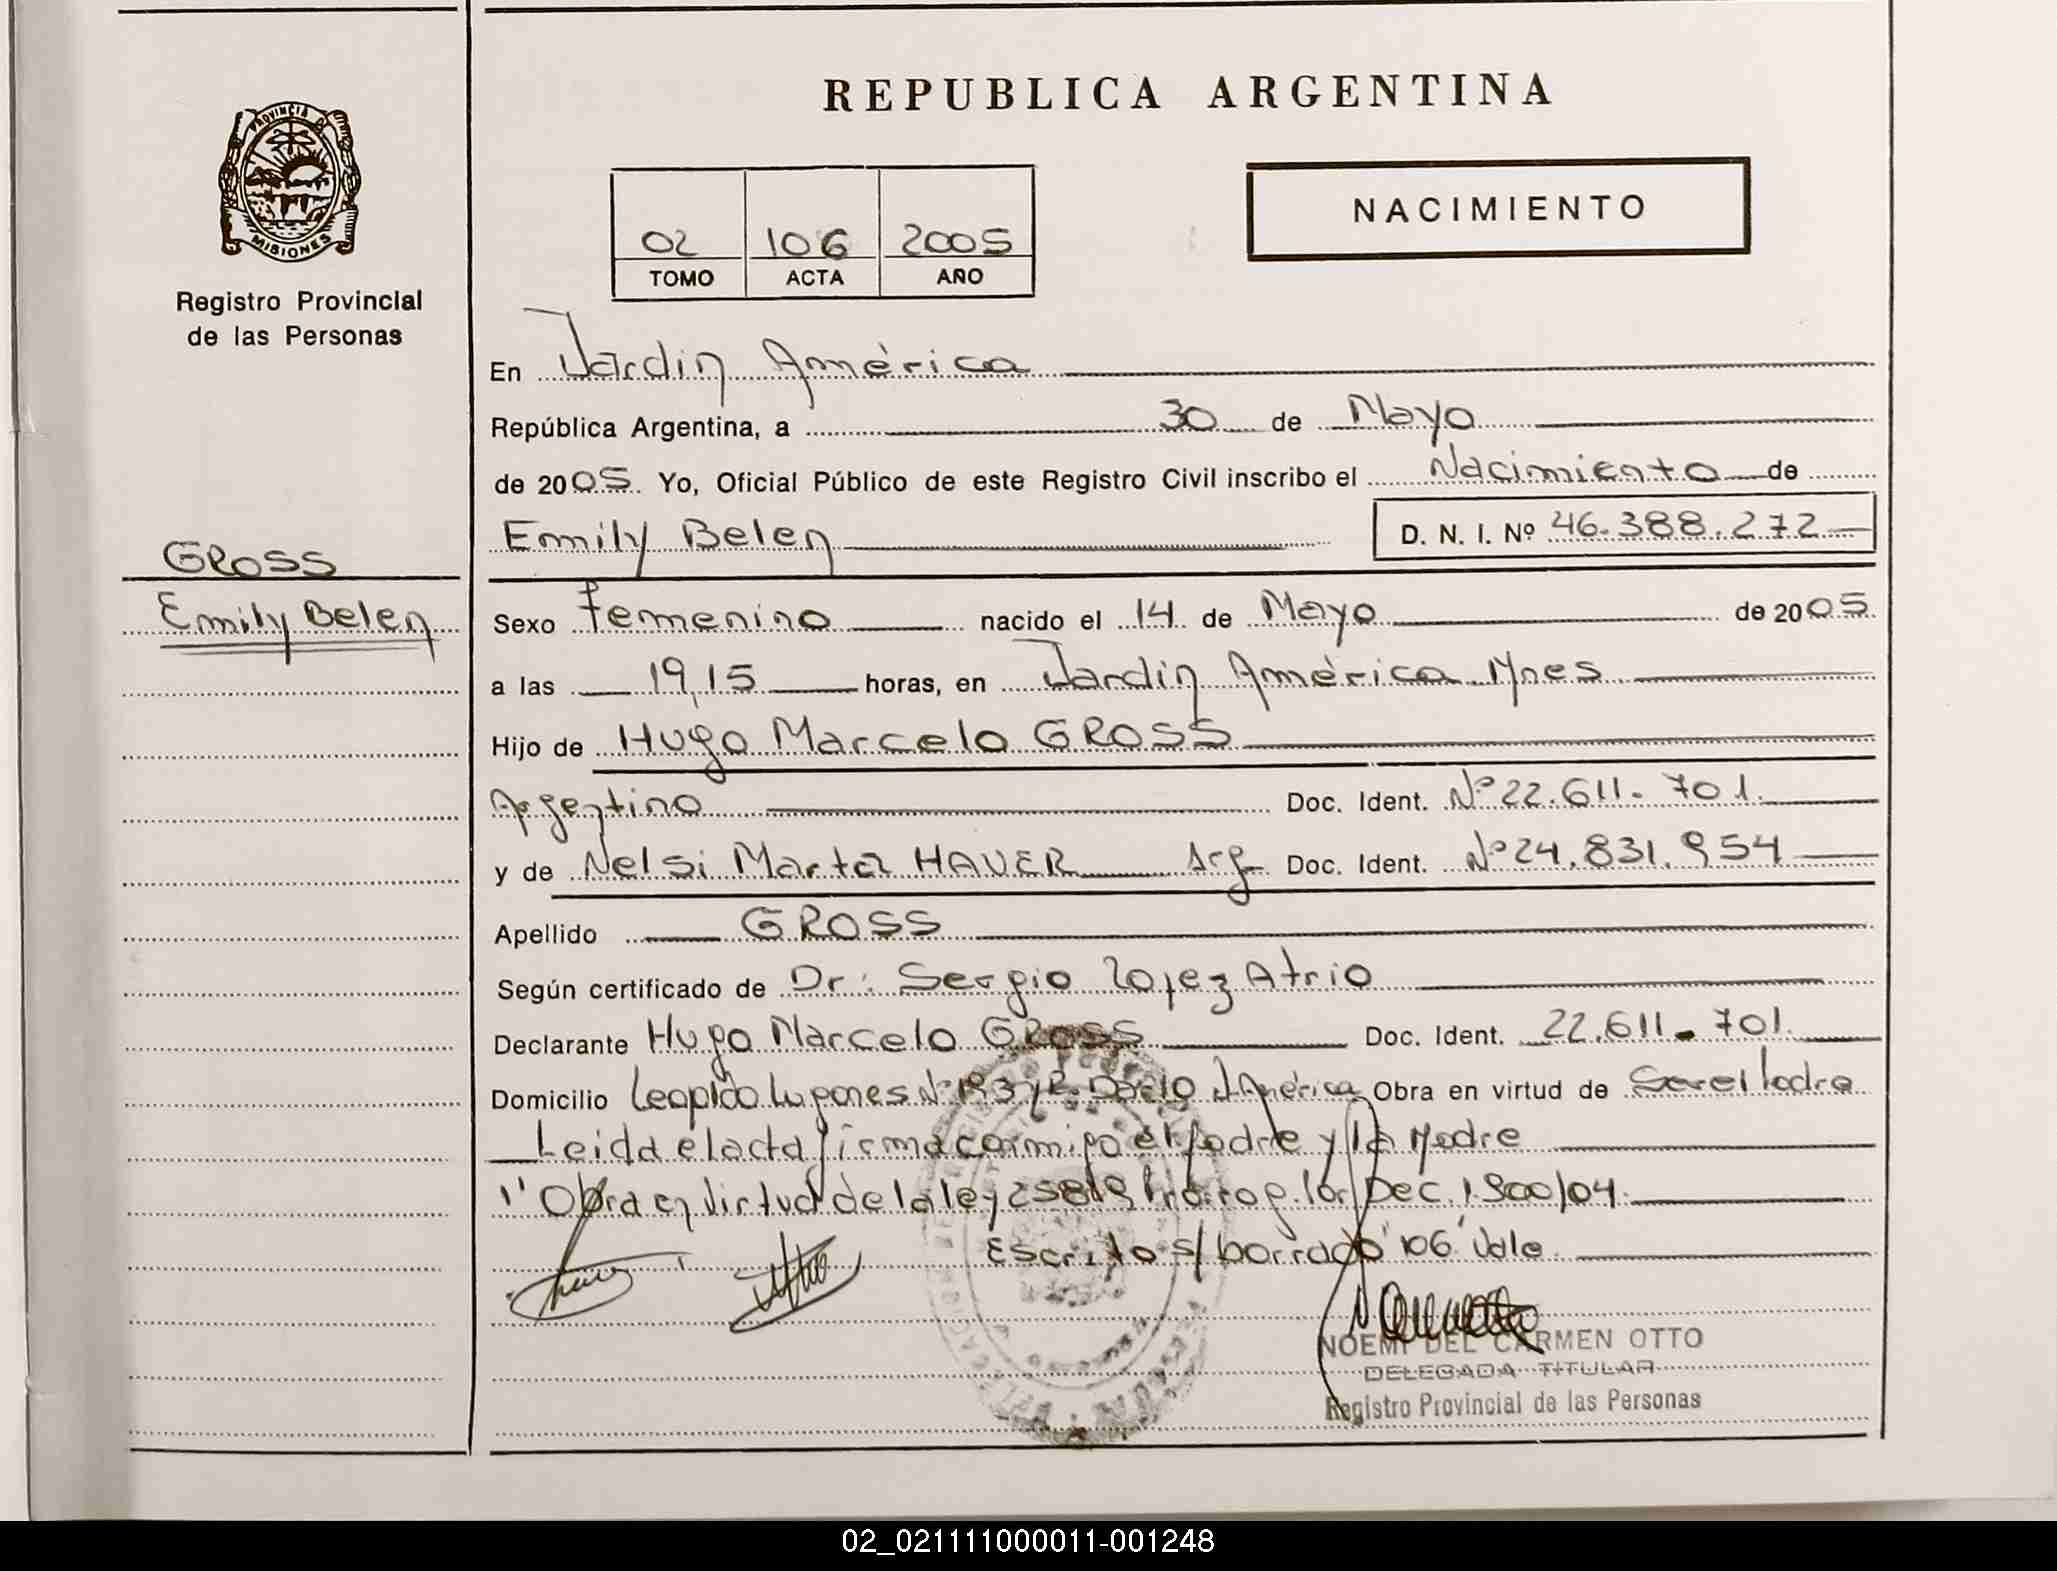 REPUBLICA ARGENTINA
PROVINCIA DE
MISIONES
Registro Provincial
de las Personas
GROSS
Emily Belen
02 106 2005
TOMO ACTA AÑO
NACIMIENTO
En Jardin América
República Argentina, a 30 de Mayo
de 2005. Yo, Oficial Público de este Registro Civil inscribo el Nacimiento de
Emily Belen D. N. I. Nº 46.388.272
Sexo Femenino nacido el 14 de Mayo de 2005.
a las 19,15 horas, en Jardin América Mnes
Hijo de Hugo Marcelo GROSS
Argentino Doc. Ident. Nº 22.611.701.
y de Nelsi Marta HAUER Arg Doc. Ident. Nº 24.831.954
Apellido GROSS
Según certificado de Dr: Sergio Lopez Atrio
Declarante Hugo Marcelo GROSS Doc. Ident. 22.611.701.
Domicilio Leopoldo Lugones Nº 193 y R. Dario J América Obra en virtud de Ser el Padre
Leida el acta firma conmigo el Padre y la Madre
1" Obra en Virtud de la ley 25819 Prorrog. Por Dec. 1.900/04.
Escrito s/ borrado "106" Vale
NOEMI DEL CARMEN OTTO
DELEGADA TITULAR
Registro Provincial de las Personas
02_021111000011-001248